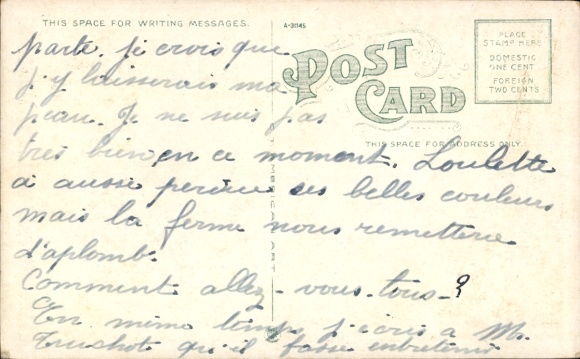 THIS SPACE FOR WRITING MESSAGES.
A-21145
POST CARD
PLACE
STAMP HERE
DOMESTIC
ONE CENT
FOREIGN
TWO CENTS
THIS SPACE FOR ADDRESS ONLY.
parte. je crois que
j'y laisserais ma
peau. Je ne suis pas
très bien en ce moment. Loulette
a aussi perdu ses belles couleurs
mais la ferme nous remettera
d'aplomb.
Comment allez-vous-tous-?
En même temps j'écris à M.
Truchot qu'il fasse entretenir